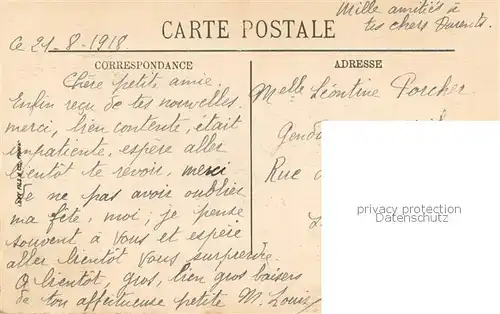 Mille amitiés à
tes chers Parents.
CARTE POSTALE
Ce 21-8-1918
CORRESPONDANCE
ADRESSE
Chère petite amie.
Enfin reçu de tes nouvelles.
merci, bien contente, était
impatiente, espère aller
bientôt te revoir, merci
de ne pas avoir oublier
ma fête, moi; je pense
souvent à vous et espère
aller bientôt vous surprendre.
A bientôt, gros, bien gros baisers
de ton affectueuse petite M. Louis
Melle Léontine Porcher
Rue
privacy protection